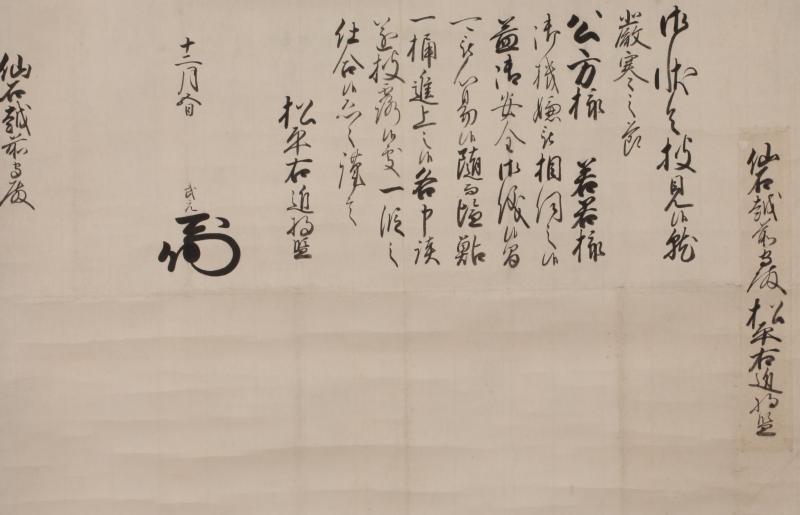 仙石越前守殿 松平右近将監
御状令披見候就
厳寒之節
公方様 若君様
御機嫌被相伺之候
益御安全御儀候間
可被心易候随而塩鮎
一桶進上之候各申談
遂披露候処一段之
仕合候恐々謹言
松平右近将監
十二月 武元
仙石越前守殿